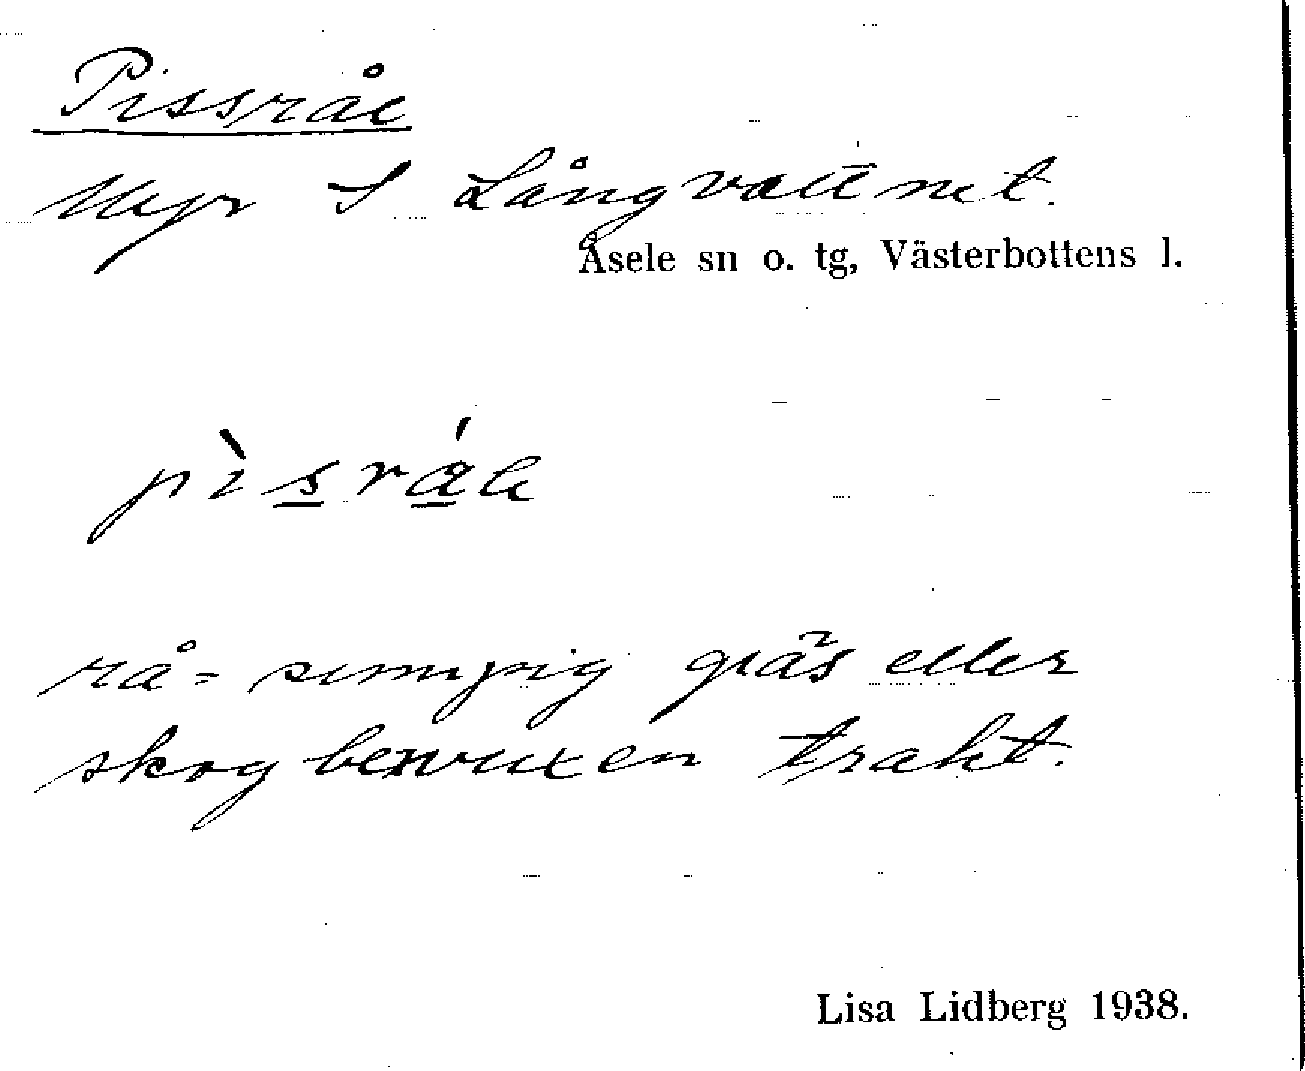 Pissråe
Myr S Långvattnet.
Åsele sn o. tg, Västerbottens l.
pìsráe
rå = sumpig gräs eller
skogbevuxen trakt.
Lisa Lidberg 1938.